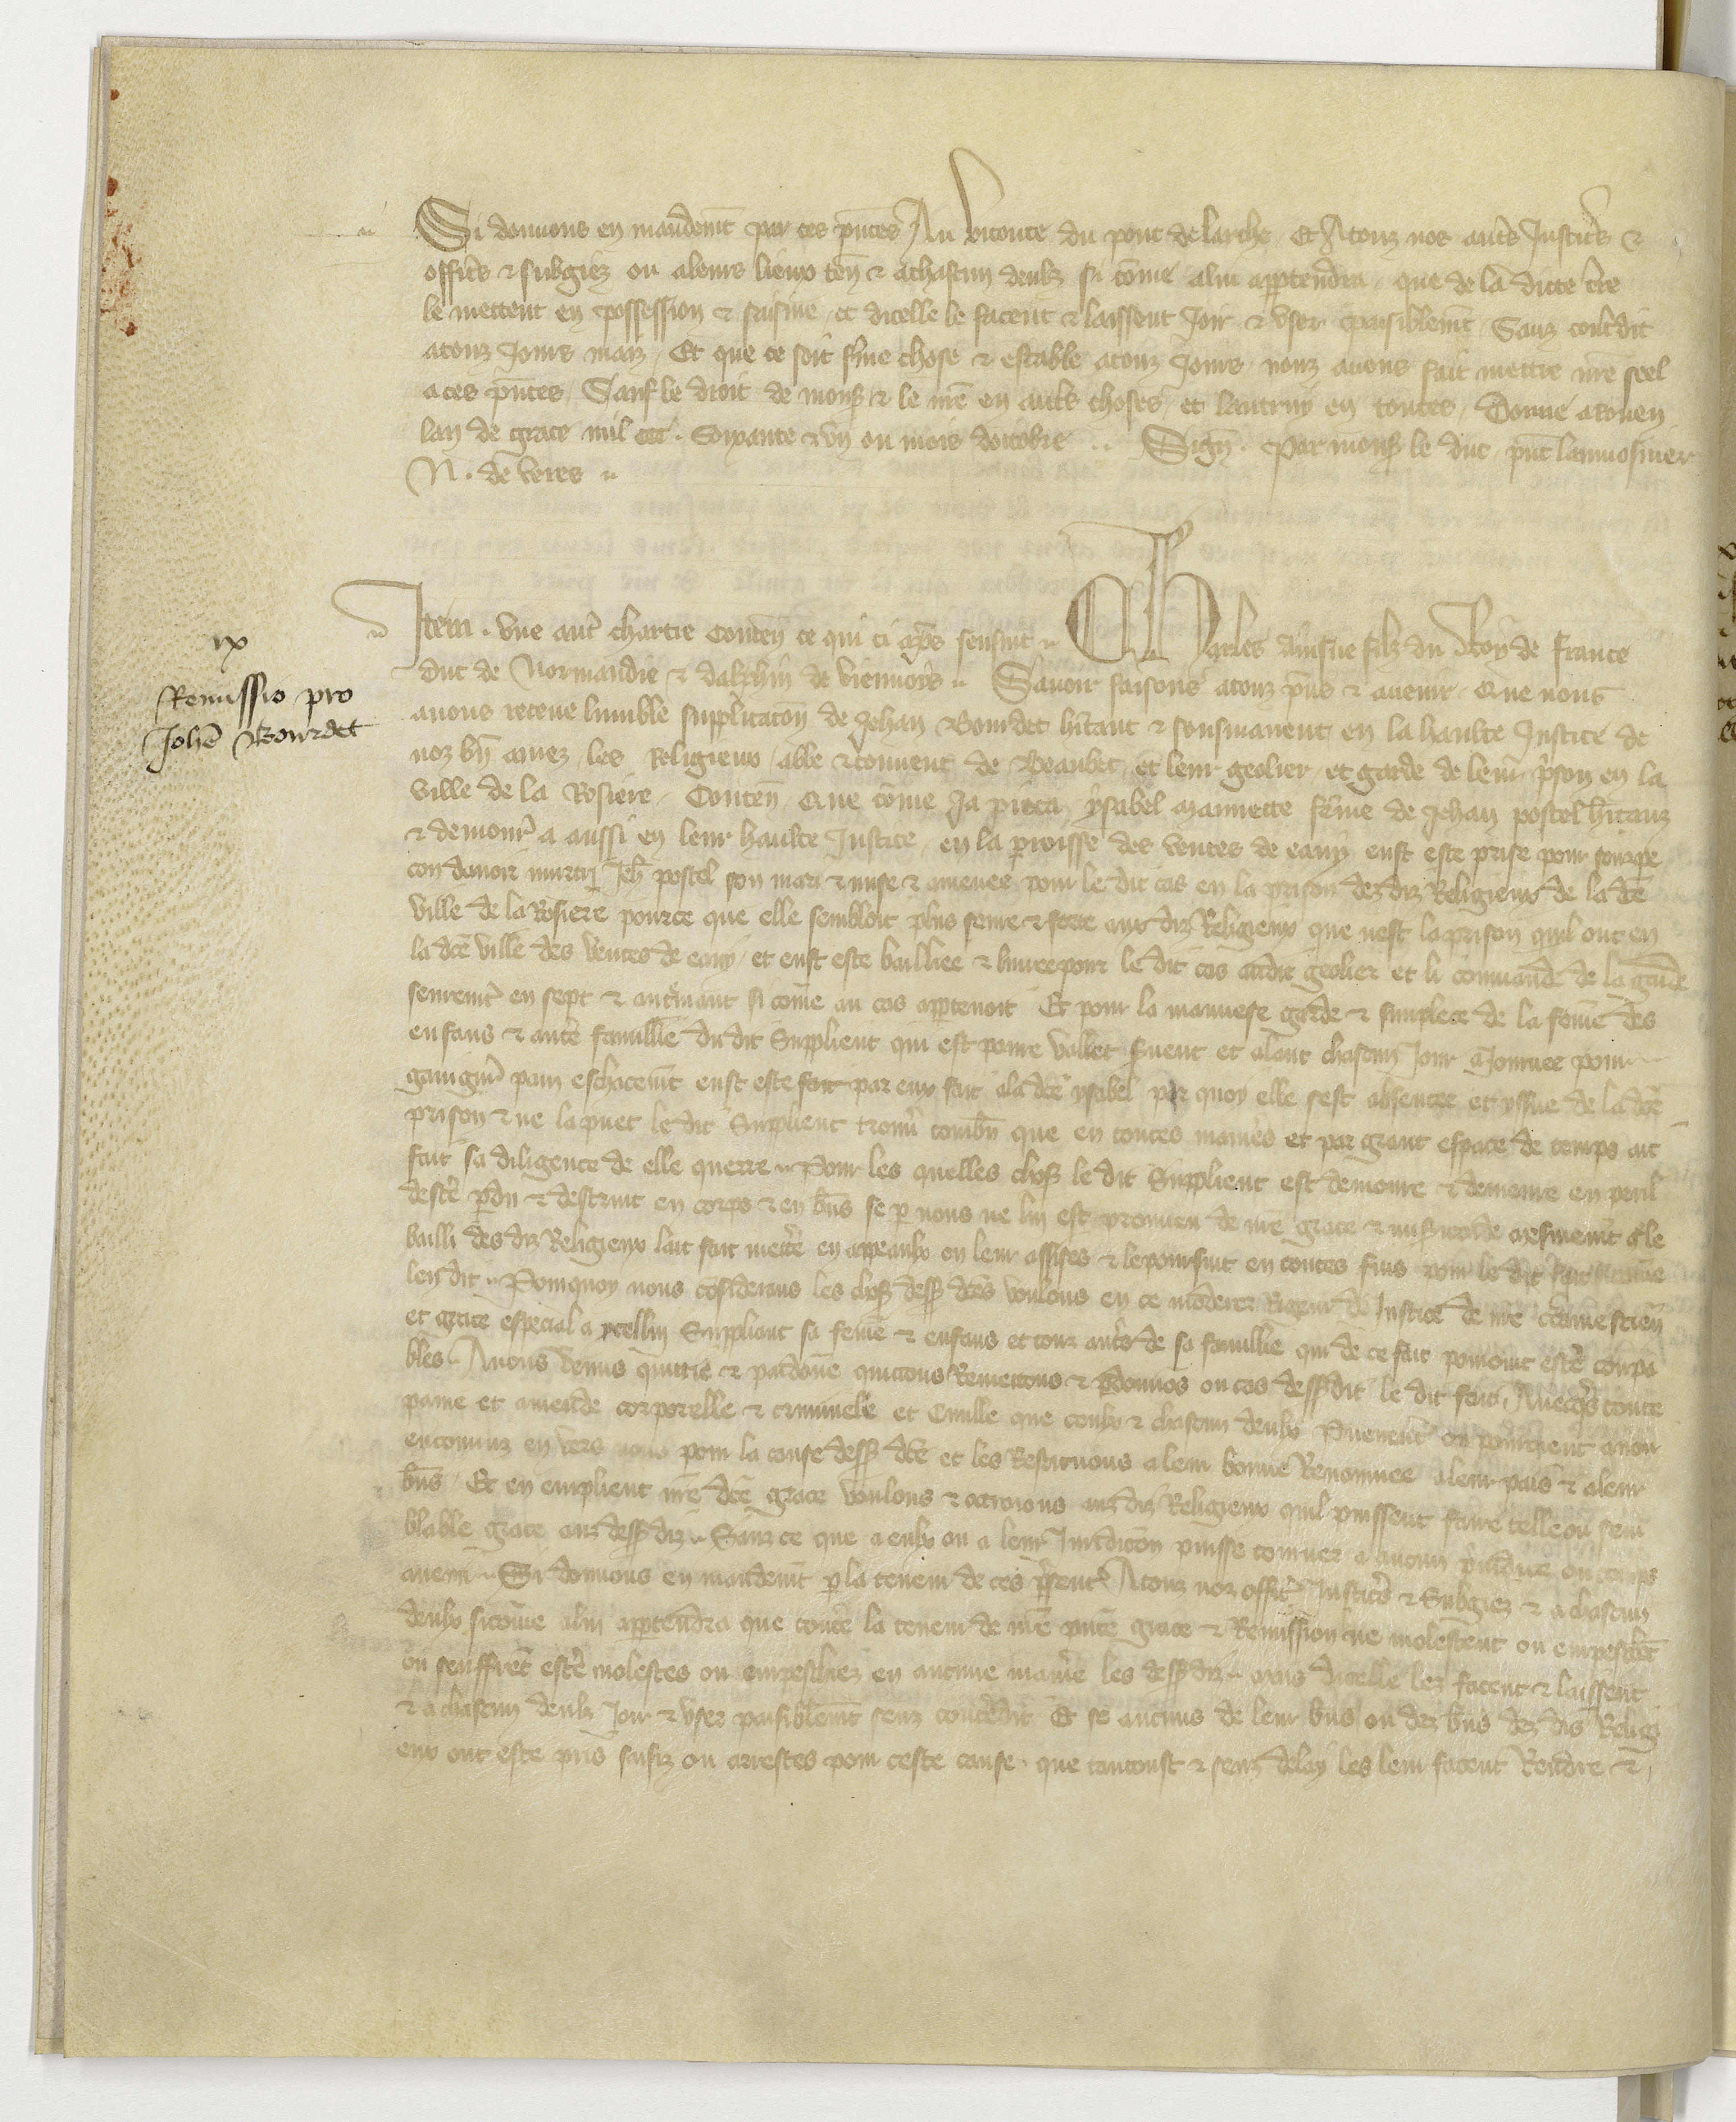 Si donnons en mandemt par ces pntes Au viconte du pont de larche Et Atouz nos autrs Justicrs &
officrs & subgiez ou aleurs lieux ten & achascun deulz si come alui appartendra que de la dicte tre
le mettent en possession & saisine et dicelle le facent & laissent Joir & vser paisiblemt Sanz contredit
atouz Jours maiz Et que ce soit ferme chose & estable atouz Jours nouz auons fait mettre nre seel
a ces pntes Sauf le droit de mons & le nre en autrs choses et lautruy en toutes Donne a Rouen
lan de grace mil ccc soixante & vn ou mois doctobre Sign Par mons le duc pnt laumosnier
N. de veres
Item vne autr chartre conten ce qui ci apres sensuit Charles Ainsne filz du Roy de France
duc de Normandie & dalphin de viennois Sauoir faisons atouz pns & auenir Que nous
auons receue lumble supplicacon de Jehan Bourdet hitant & sousmanent en la haulte Justice de
noz bn amez les Religieux abbe & conuent de Beaubec et leur geolier et garde de leur prison en la
ville de la Rosiere Conten Que come Ja pieca ysabel mannette feme de Jehan postel hitanz
& demourr a aussi en leur haulte Justice en la parroisse des ventes de eauy eust este prise pour soupe
con dauoir murtri Jeh postel son mari & mise & amenee pour le dit cas en la prison dez diz Religieux de la dce
ville de la Rosiere pource que elle sembloit plus seine & forte aux diz Religieux que nest la prison quil ont en
la dce ville des ventes de eauy et eust este bailliee & liuree pour le dit cas audit geolier et li commande de la garder
seuremt en sept & autrmant si come au cas appartenoit Et pour la mauuese garde & simplece de la feme des
enfans & autre famillie du dit Supplient qui est poure vallet Suent et alant chascun Jour a Journee pour
gaaignier pain eschacemt eust este fait par eux fait ala dce ysabel par quoy elle sest absentee et yssue de la dce
prison & ne la puet le dit Supplient trouur combn que en toutes manieres et par grant espace de temps ait
fait sa diligence de elle querre Pour les quelles choses le dit Supplient est demoure & demeure en peril
destre perdu & destruit en corps & en bns se par nous ne lui est proueu de nre grace & misericorde mesmemt que le
bailli des diz Religieux lait fait mettre en appeaulx en leur assises & le poursuit en toutes fins pour le dit fait si come
len dit Pourquoy nous considerans les choses dessus dces voulons en ce moderer Rigeur de Justice de nre certaine scien
et grace especial a ycellui Suppliant sa feme & enfans et touz autrs de sa famillie qui de ce fait pourroient estre coupa
bles Auons Remis quittie & pardone quictons Remettons & pdonnos ou cas dessus dit le dit fait Auecqs toute
paine et amende corporelle & criminele et Ciuille que ceulx & chascun deulx
encouruz en vers nous pour la cause dessus dce et les Restituons a leur bonne Renommee a leur pais & a leur
bns Et en empliant nre dce grace voulons & octroions aus diz Religieux quil puissent faire telle ou sem
blable grace aus dessus diz Sanz ce que a eulx ou a leur Juridicon puisse tourner a aucun preiudice ou temps
auenir Si donnons en mandemt par la teneur de ces presents Atouz noz officrs Justicrs & Subgiez & a chascun
deulx sicome alui appartendra que contre la teneur de nre pnte grace & Remission ne molestent ou empeschet
ou seuffrent estre molestes ou empeschiez en aucune maniere les dessus diz mais dicelle lez facent & laissent
& a chascun deulz Joir & vser paisiblemt senz contredit Et se aucuns de leur bns ou dez bns dez dis Religi
eux ont este pris saisiz ou arrestes pour ceste cause que tantoust & senz delay les leur facent Rendre &
ix
Remissio pro
Johe Bourdet